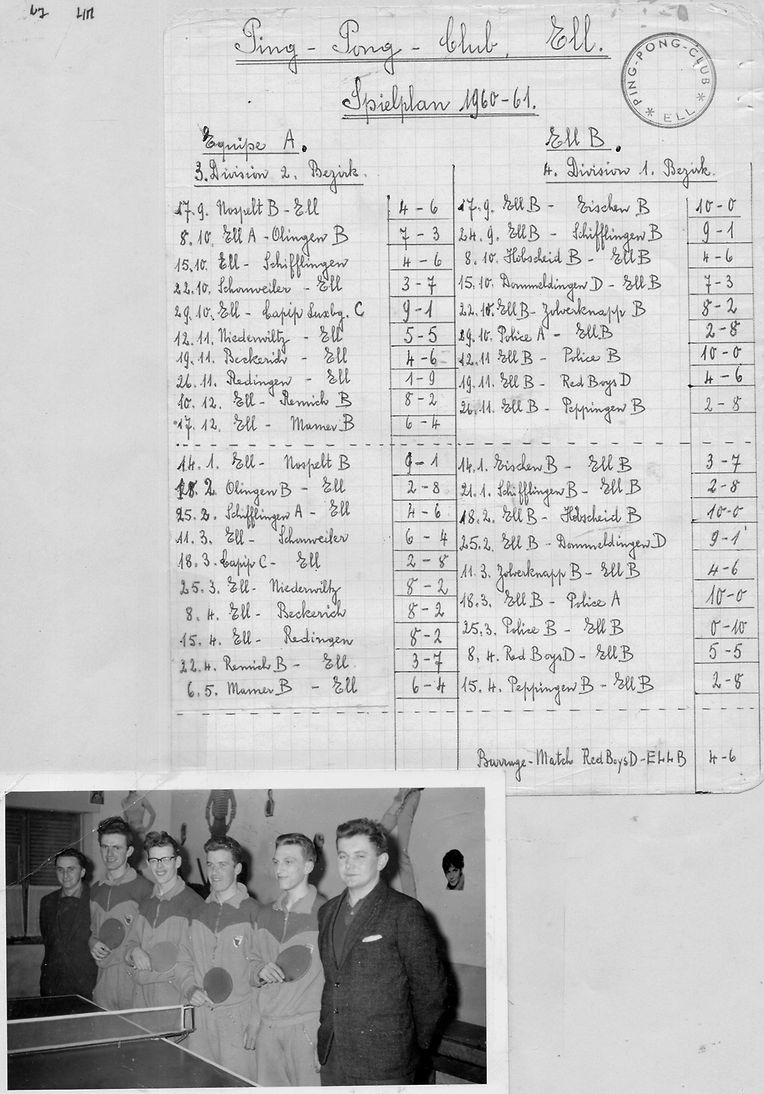 Ping-Pong-Club, Ell.
PING-PONG-CLUB
* ELL *
Spielplan 1960-61.
Equipe A.
3. Division 2. Bezirk.
17.9. Nospelt B - Ell 4-6
8.10. Ell A - Olingen B 7-3
15.10. Ell - Schifflingen 4-6
22.10. Schouweiler - Ell 3-7
29.10. Ell - Capip Luxbg. C 9-1
12.11. Niederwiltz - Ell 5-5
19.11. Beckerich - Ell 4-6
26.11. Redingen - Ell 1-9
10.12. Ell - Remich B 8-2
17.12. Ell - Mamer B 6-4
14.1. Ell - Nospelt B 9-1
18.2. Olingen B - Ell 2-8
25.2. Schifflingen A - Ell 4-6
11.3. Ell - Schouweiler 6-4
18.3. Capip C - Ell 2-8
25.3. Ell - Niederwiltz 8-2
8.4. Ell - Beckerich 8-2
15.4. Ell - Redingen 8-2
22.4. Remich B - Ell 3-7
6.5. Mamer B - Ell 6-4
Ell B.
4. Division 1. Bezirk.
17.9. Ell B - Eischen B 10-0
24.9. Ell B - Schifflingen B 9-1
8.10. Hobscheid B - Ell B 4-6
15.10. Dommeldingen D - Ell B 7-3
22.10. Ell B - Zolverknapp B 8-2
29.10. Police A - Ell B 2-8
12.11 Ell B - Police B 10-0
19.11. Ell B - Red Boys D 4-6
26.11. Ell B - Peppingen B 2-8
14.1. Eischen B - Ell B 3-7
21.1. Schifflingen B - Ell B 2-8
18.2. Ell B - Hobscheid B 10-0
25.2. Ell B - Dommeldingen D 9-1
11.3. Zolverknapp B - Ell B 4-6
18.3. Ell B - Police A 10-0
25.3. Police B - Ell B 0-10
8.4. Red Boys D - Ell B 5-5
15.4. Peppingen B - Ell B 2-8
Barrage-Match Red Boys D - ELL B 4-6